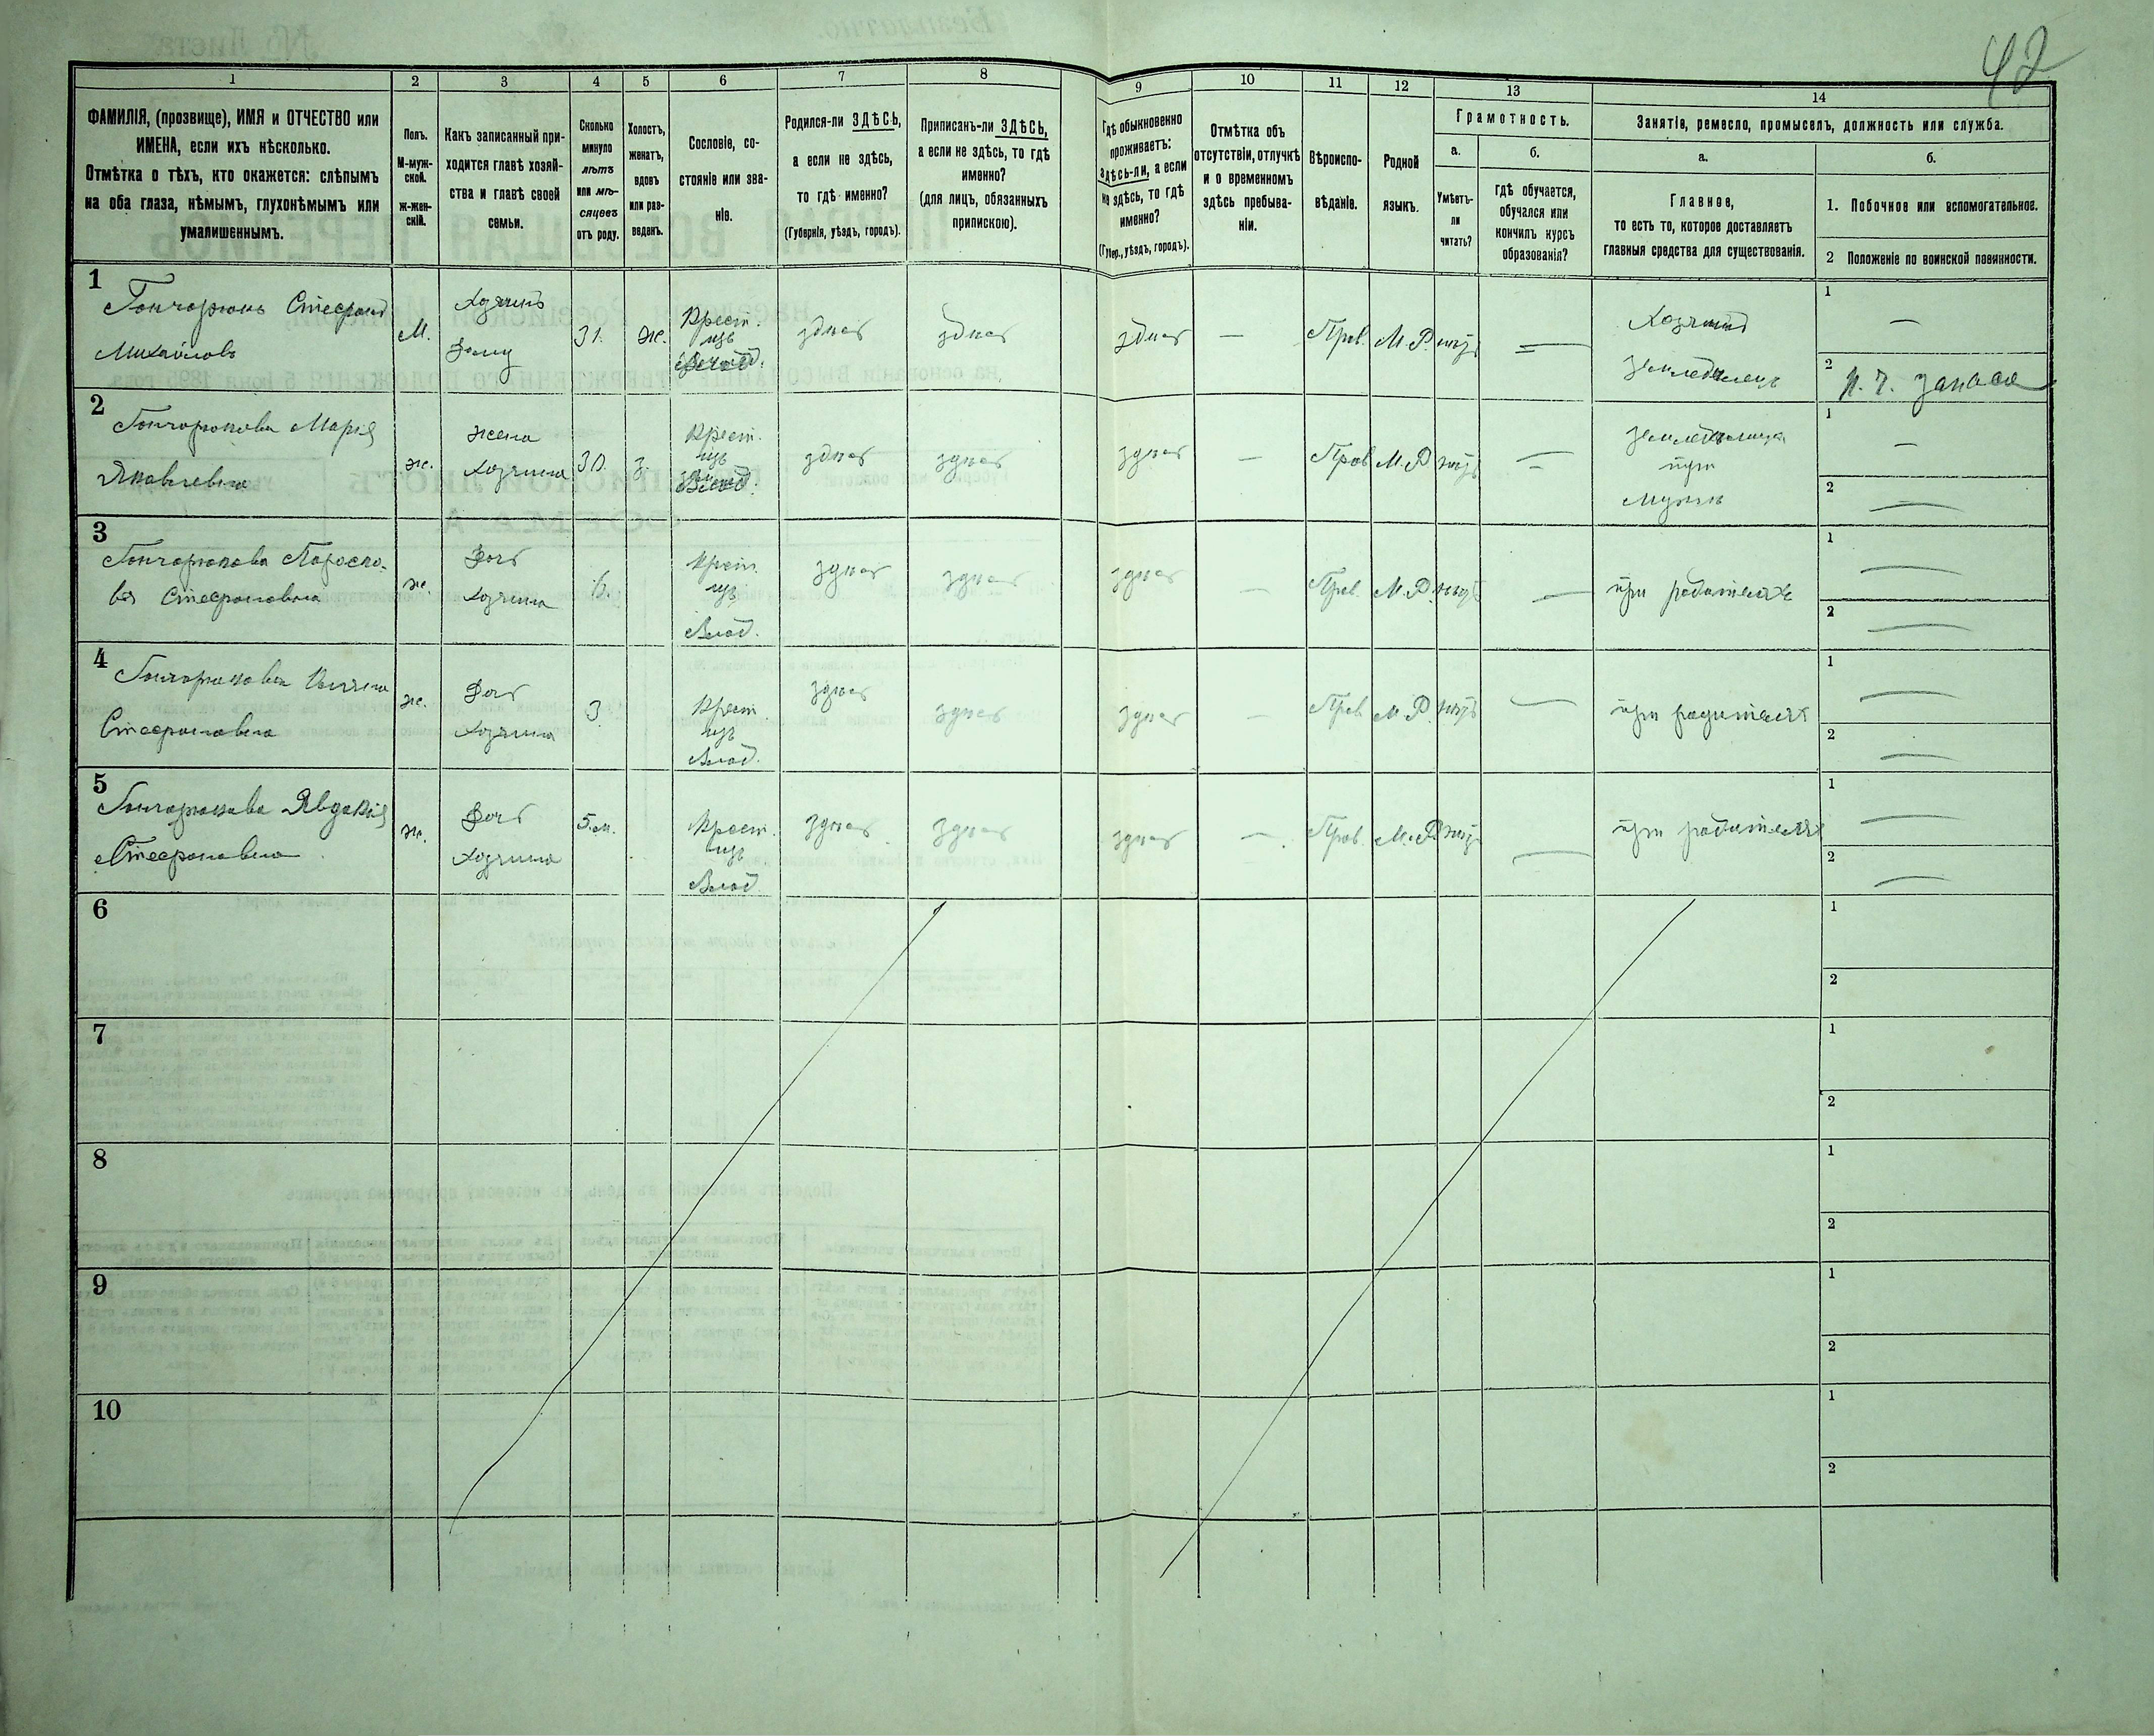 42
1
2
3
4
5
6
7
8
9
10
11
12
13
14
ФАМИЛІЯ, (прозвище), ИМЯ и ОТЧЕСТВО или
ИМЕНА, если ихъ нѣсколько.
Отмѣтка о тѣхъ, кто окажется: слѣпымъ
на оба глаза, нѣмымъ, глухонѣмымъ или
умалишеннымъ.
Полъ.
М-муж-
ской.
ж-жен-
скій.
Какъ записанный при-
ходится главѣ хозяй-
ства и главѣ своей
семьи.
Сколько
минуло
лѣтъ
или мѣ-
сяцевъ
отъ роду.
Холостъ,
женатъ,
вдовъ
или раз-
веденъ.
Сословіе, со-
стояніе или зва-
ніе.
Родился-ли ЗДѢСЬ,
а если не здѣсь,
то гдѣ именно?
(Губернія, уѣздъ, городъ).
Приписанъ-ли ЗДѢСЬ,
а если не здѣсь, то гдѣ
именно?
(для лицъ, обязанныхъ
припискою).
Гдѣ обыкновенно
проживаетъ:
здѣсь-ли, а если
не здѣсь, то гдѣ
именно?
(Губер., уѣздъ, городъ).
Отмѣтка объ
отсутствіи, отлучкѣ
и о временномъ
здѣсь пребыва-
ніи.
Вѣроиспо-
вѣданіе.
Родной
языкъ.
Грамотность.
а.
Умѣетъ-
ли
читать?
б.
гдѣ обучается,
обучался или
кончилъ курсъ
образованія?
Занятіе, ремесло, промыселъ, должность или служба.
а.
Главное,
то есть то, которое доставляетъ
главныя средства для существованія.
б.
1. Побочное или вспомогательное.
2 Положеніе по воинской повинности.
1
Гончарюкъ Стефанъ
Михайловъ
М.
Хозяинъ
Дому
31.
ж.
Крест.
изъ
здѣсь
здѣсь
здѣсь
—
Прав.
М.Р.
нѣтъ
Хозяинъ
Земледѣлецъ
1
—
2
запаса
2
Гончарюкова Марія
Яковлевна
ж.
жена
Хозяина
30.
з.
Крест.
изъ
здѣсь
здѣсь
здѣсь
—
Прав.
М.Р.
нѣтъ
при
Мужѣ
1
—
2
3
Гончарюкова Параско-
вя Стефановна
ж.
Дочь
Хозяина
6.
Крест.
изъ
Влад.
здѣсь
здѣсь
здѣсь
—
Прав.
М.Р.
нѣтъ
при родителяхъ
1
2
4
Гончарюкова
Стефановна
ж.
Дочь
Хозяина
3
Крест.
изъ
Влад.
здѣсь
здѣсь
здѣсь
—
Прав.
М.Р.
нѣтъ
при родителяхъ
1
2
5
Гончарюкова Явдокія
Стефановна
ж.
Дочь
Хозяина
5.м.
Крест.
изъ
Влад.
здѣсь
здѣсь
здѣсь
—
Прав.
М.Р.
нѣтъ
при родителяхъ
1
2
6
1
2
7
1
2
8
1
2
9
1
2
10
1
2